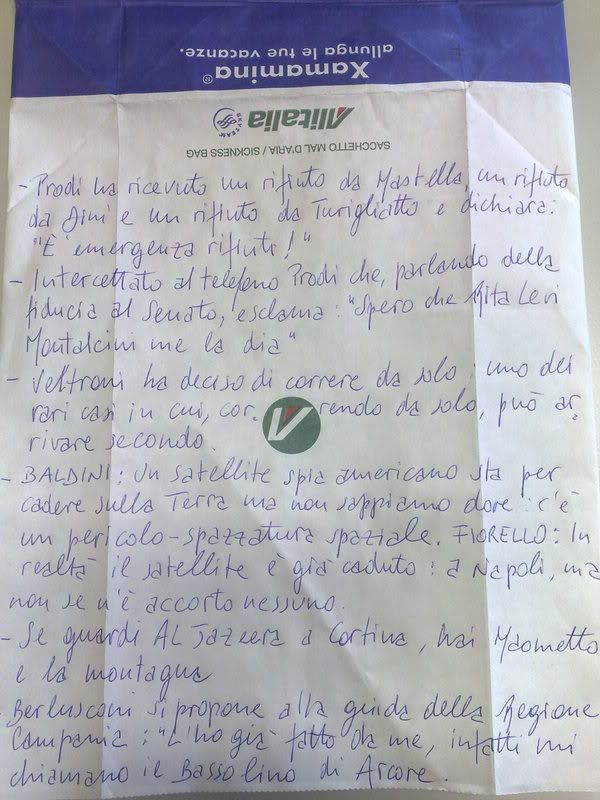 Xamamina®
allunga le tue vacanze.
Alitalia
SKYTEAM
SACCHETTO MAL D'ARIA / SICKNESS BAG
- Prodi ha ricevuto un rifiuto da Mastella, un rifiuto
da Dini e un rifiuto da Turigliatto e dichiara:
"È emergenza rifiuti!"
- Intercettato al telefono Prodi che, parlando della
fiducia al Senato, esclama: "Spero che Rita Levi
Montalcini me la dia"
- Veltroni ha deciso di correre da solo: uno dei
rari casi in cui, cor- rendo da solo, può ar-
rivare secondo.
- BALDINI: Un satellite spia americano sta per
cadere sulla Terra ma non sappiamo dove: c'è
un pericolo-spazzatura spaziale. FIORELLO: In
realtà il satellite è già caduto: a Napoli, ma
non se n'è accorto nessuno.
- Se guardi AL Jazeera a Cortina, hai Maometto
e la montagna
- Berlusconi si propone alla guida della Regione
Campania: "L'ho già fatto da me, infatti mi
chiamano il Bassolino di Arcore.